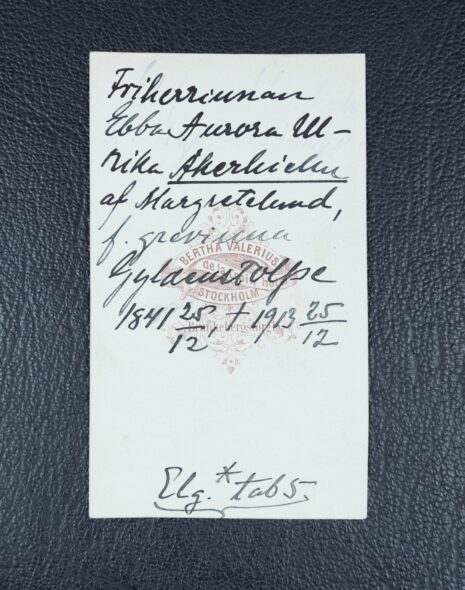 Friherrinnan
Ebba Aurora Ul-
rika Åkerhielm
af Margretelund,
f. grevinna
Gyldenstolpe
1841 25/12, † 1913 25/12
BERTHA VALERIUS
STOCKHOLM
Elg. * tab 5.